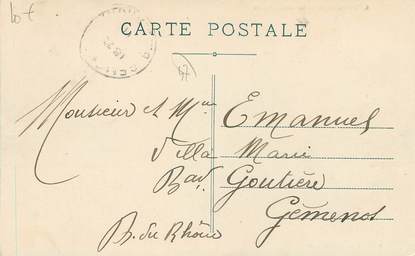 lot
CARTE POSTALE
47
Monsieur et Mme Emanuel
Villa Marie
Bad Goutière
Gémenos
B. du Rhône